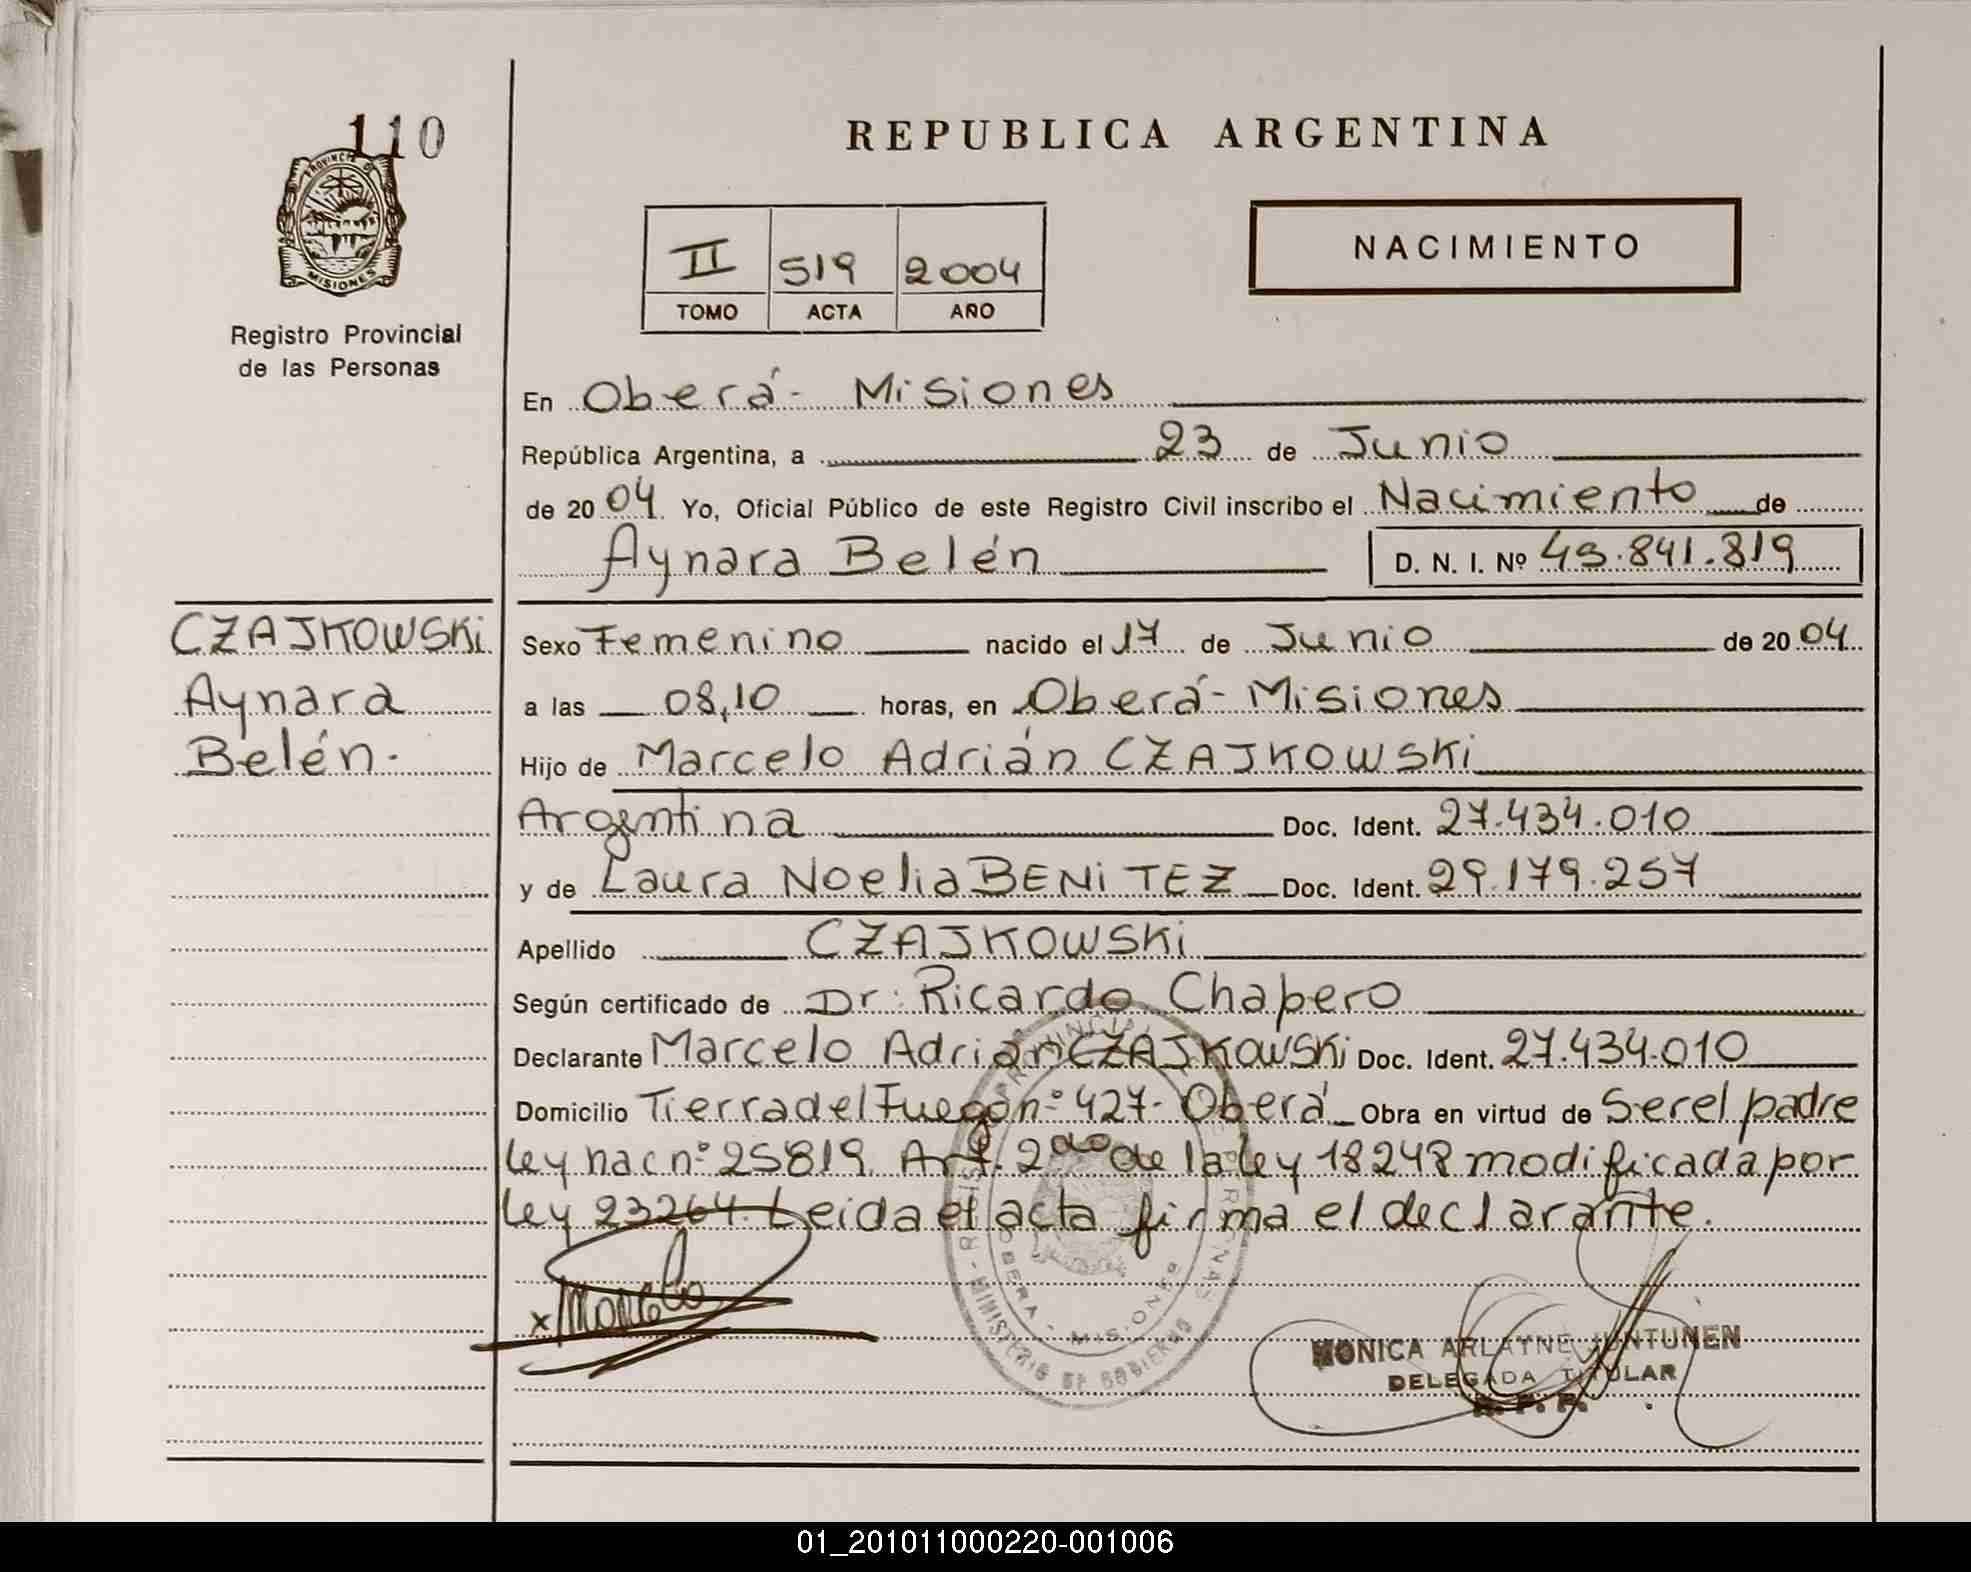 110
PROVINCIA DE
MISIONES
Registro Provincial
de las Personas
REPUBLICA ARGENTINA
NACIMIENTO
II 519 2004
TOMO ACTA AÑO
En Oberá - Misiones
República Argentina, a 23 de Junio
de 2004 Yo, Oficial Público de este Registro Civil inscribo el Nacimiento de
Aynara Belén D. N. I. Nº 45.841.819
CZAJKOWSKi
Aynara
Belén.
Sexo Femenino nacido el 17 de Junio de 2004
a las 08,10 horas, en Oberá - Misiones
Hijo de Marcelo Adrián CZAJKOWSKi
Argentina Doc. Ident. 27.434.010
y de Laura Noelia BENiTEZ Doc. Ident. 29.179.257
Apellido CZAJKOWSKi
Según certificado de Dr: Ricardo Chapero
Declarante Marcelo Adrián CZAJKOWSKi Doc. Ident. 27.434.010
Domicilio Tierra del Fuego nº 427- Oberá Obra en virtud de Ser el padre
ley nac nº 25819. Art. 2do de la ley 18248 modificada por
ley 23264. Leida el acta firma el declarante.
x Marcelo
OBERA - MISIONES
MINISTERIO DE GOBIERNO
MONICA ARLAYNE JUNTUNEN
DELEGADA TITULAR
R. P. P.
01_201011000220-001006